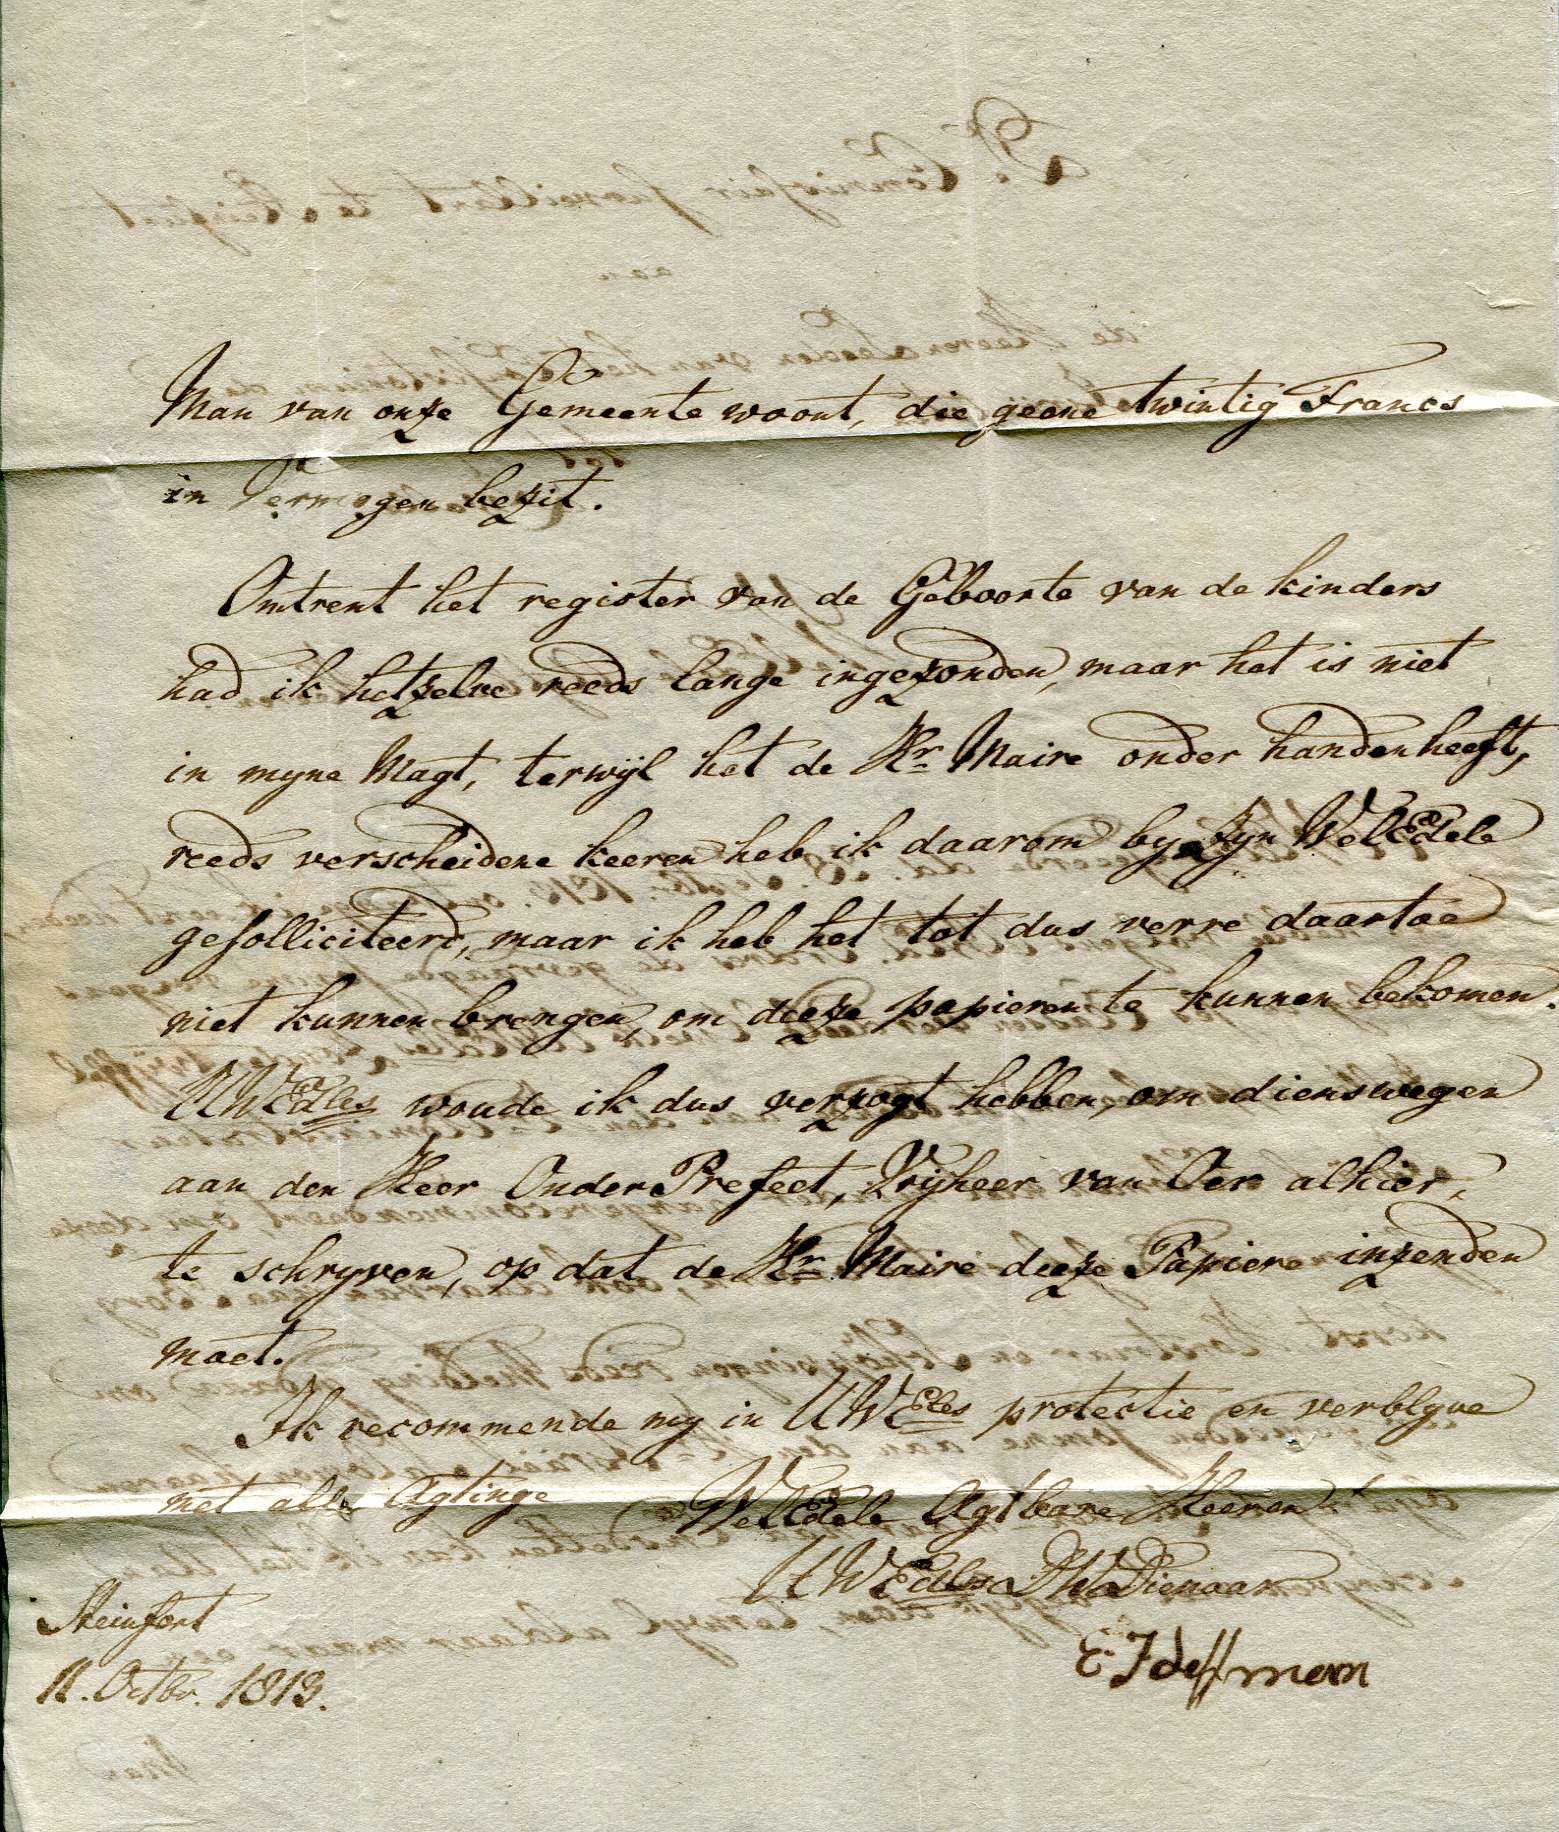 Man van onze Gemeente woont, die geene twintig Francs
in Vermogen bezit.
Omtrent het register van de Geboorte van de kinders
had ik hetzelve reeds lange ingezonden, maar het is niet
in myne Magt, terwijl het de Hr Maire onder handen heeft,
reeds verscheidene keeren heb ik daarom by Zyn WelEdele
gesolliciteerd, maar ik heb het tot dus verre daartoe
niet kunnen brengen, om deeze papieren te kunnen bekomen.
UWEdles woude ik dus verzogt hebben, om dienswegen
aan den Heer Onder Prefect, Vrijheer van Oer alhier,
te schryven, op dat de Hr Maire deeze Papiere inzenden
moet.
Ik recommende my in UWEles protectie en verblyve
met alle Agtinge
WelEdele Agtbare Heeren
UWEdles DW Dienaar
Steinfort
11. Octbr. 1813.